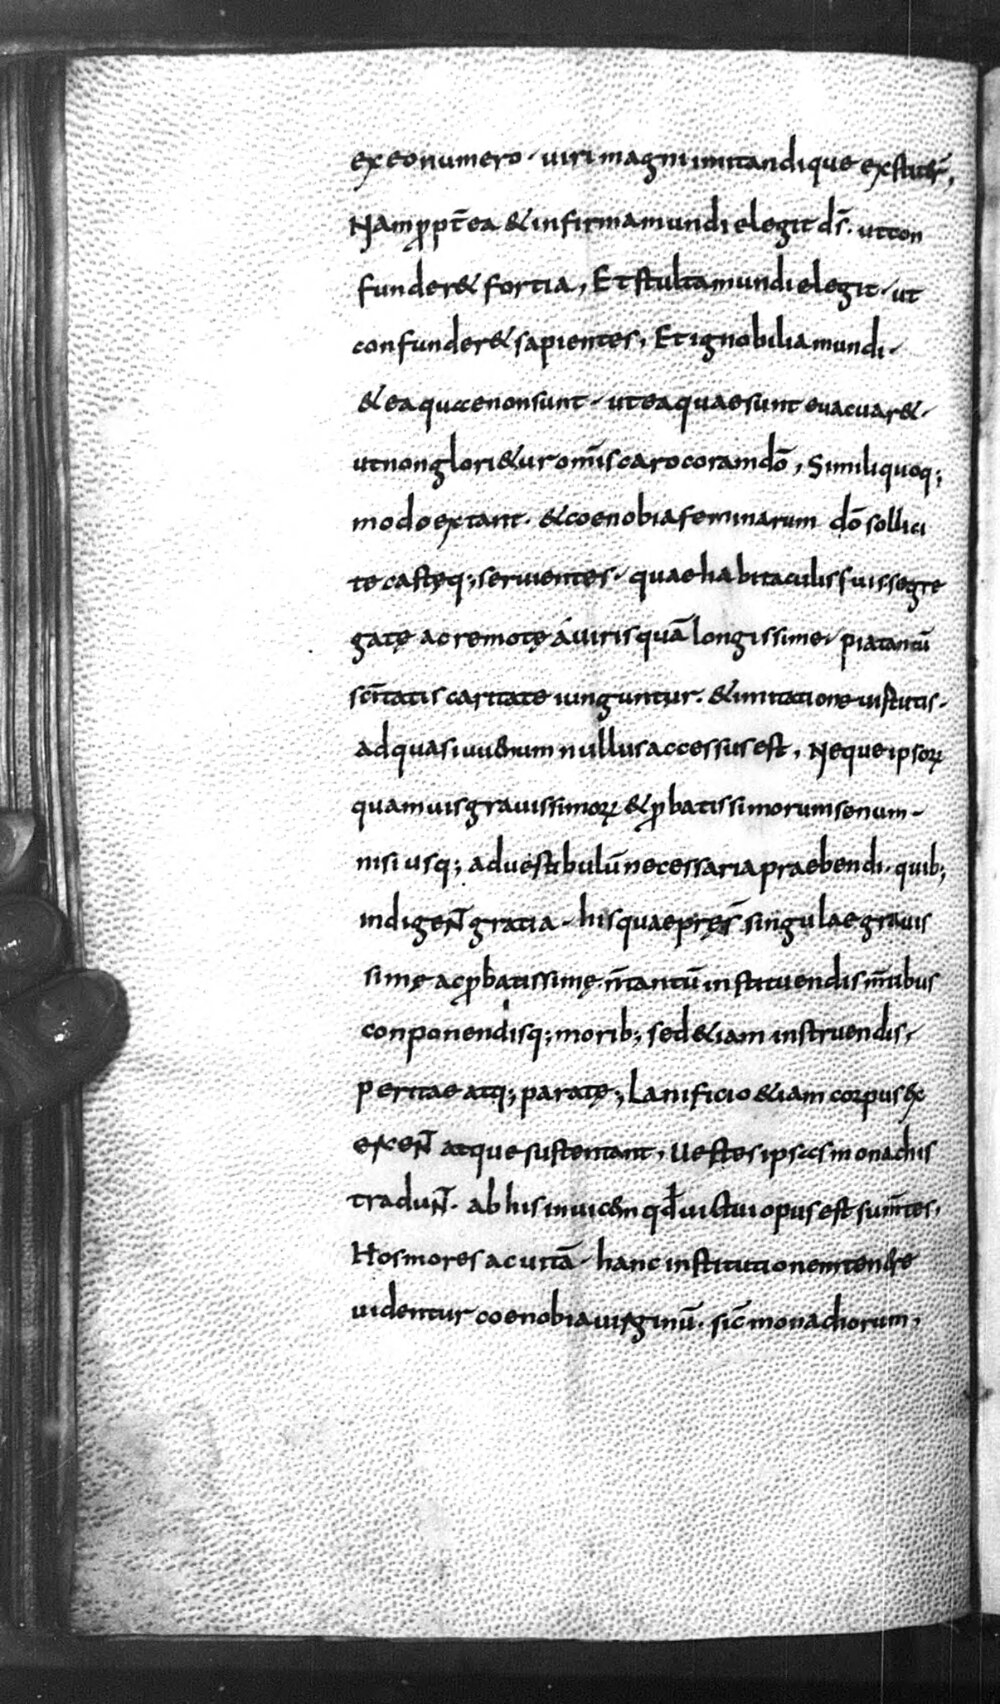 ex eo numero · uiri magni imitandique exstiter̄,
Nam ꝓpt̄ea & infirma mundi elegit dr̄s · ut con
funder& fortia, Et stulta mundi elegit · ut
confunder& sapientes, Et ignobilia mundi ·
& ea quae non sunt · ut ea quae sunt euacuar& ·
ut non glori&ur om̄is caro coram dō, Simili quoq;
modo extant · & coenobia feminarum dō sollici
te castęq; seruientes · quae habitaculis suis segre
gatę ac remotę á uiris quā longissime · pia tantū
sc̄itatis caritate iunguntur · & imitatione uirtutis ·
ad quas iuuenum nullus accessus est, Neque ipsoꝝ
quamuis grauissimoꝝ & ꝓbatissimorum senum ·
nisi usq; ad uestibulū necessaria praebendi · quib;
indigeN̄ gratia · his quae pręs̄ singulae grauis
simę ac ꝓbatissimę · n̄ tantū instituendis m̄tibus
conponendisq; morib; sed &iam instruendis,
Peritae atq; paratę, Lanificio &iam corpus
exceN̄ atque sustentant, Uestes ipsas monachis
traduN̄ · ab his inuicem qd̄ uictui opus est sum̄tes,
Hos mores ac uitā · hanc institutionem tenere
uidentur coenobia uirginū · sic̄ monachorum,